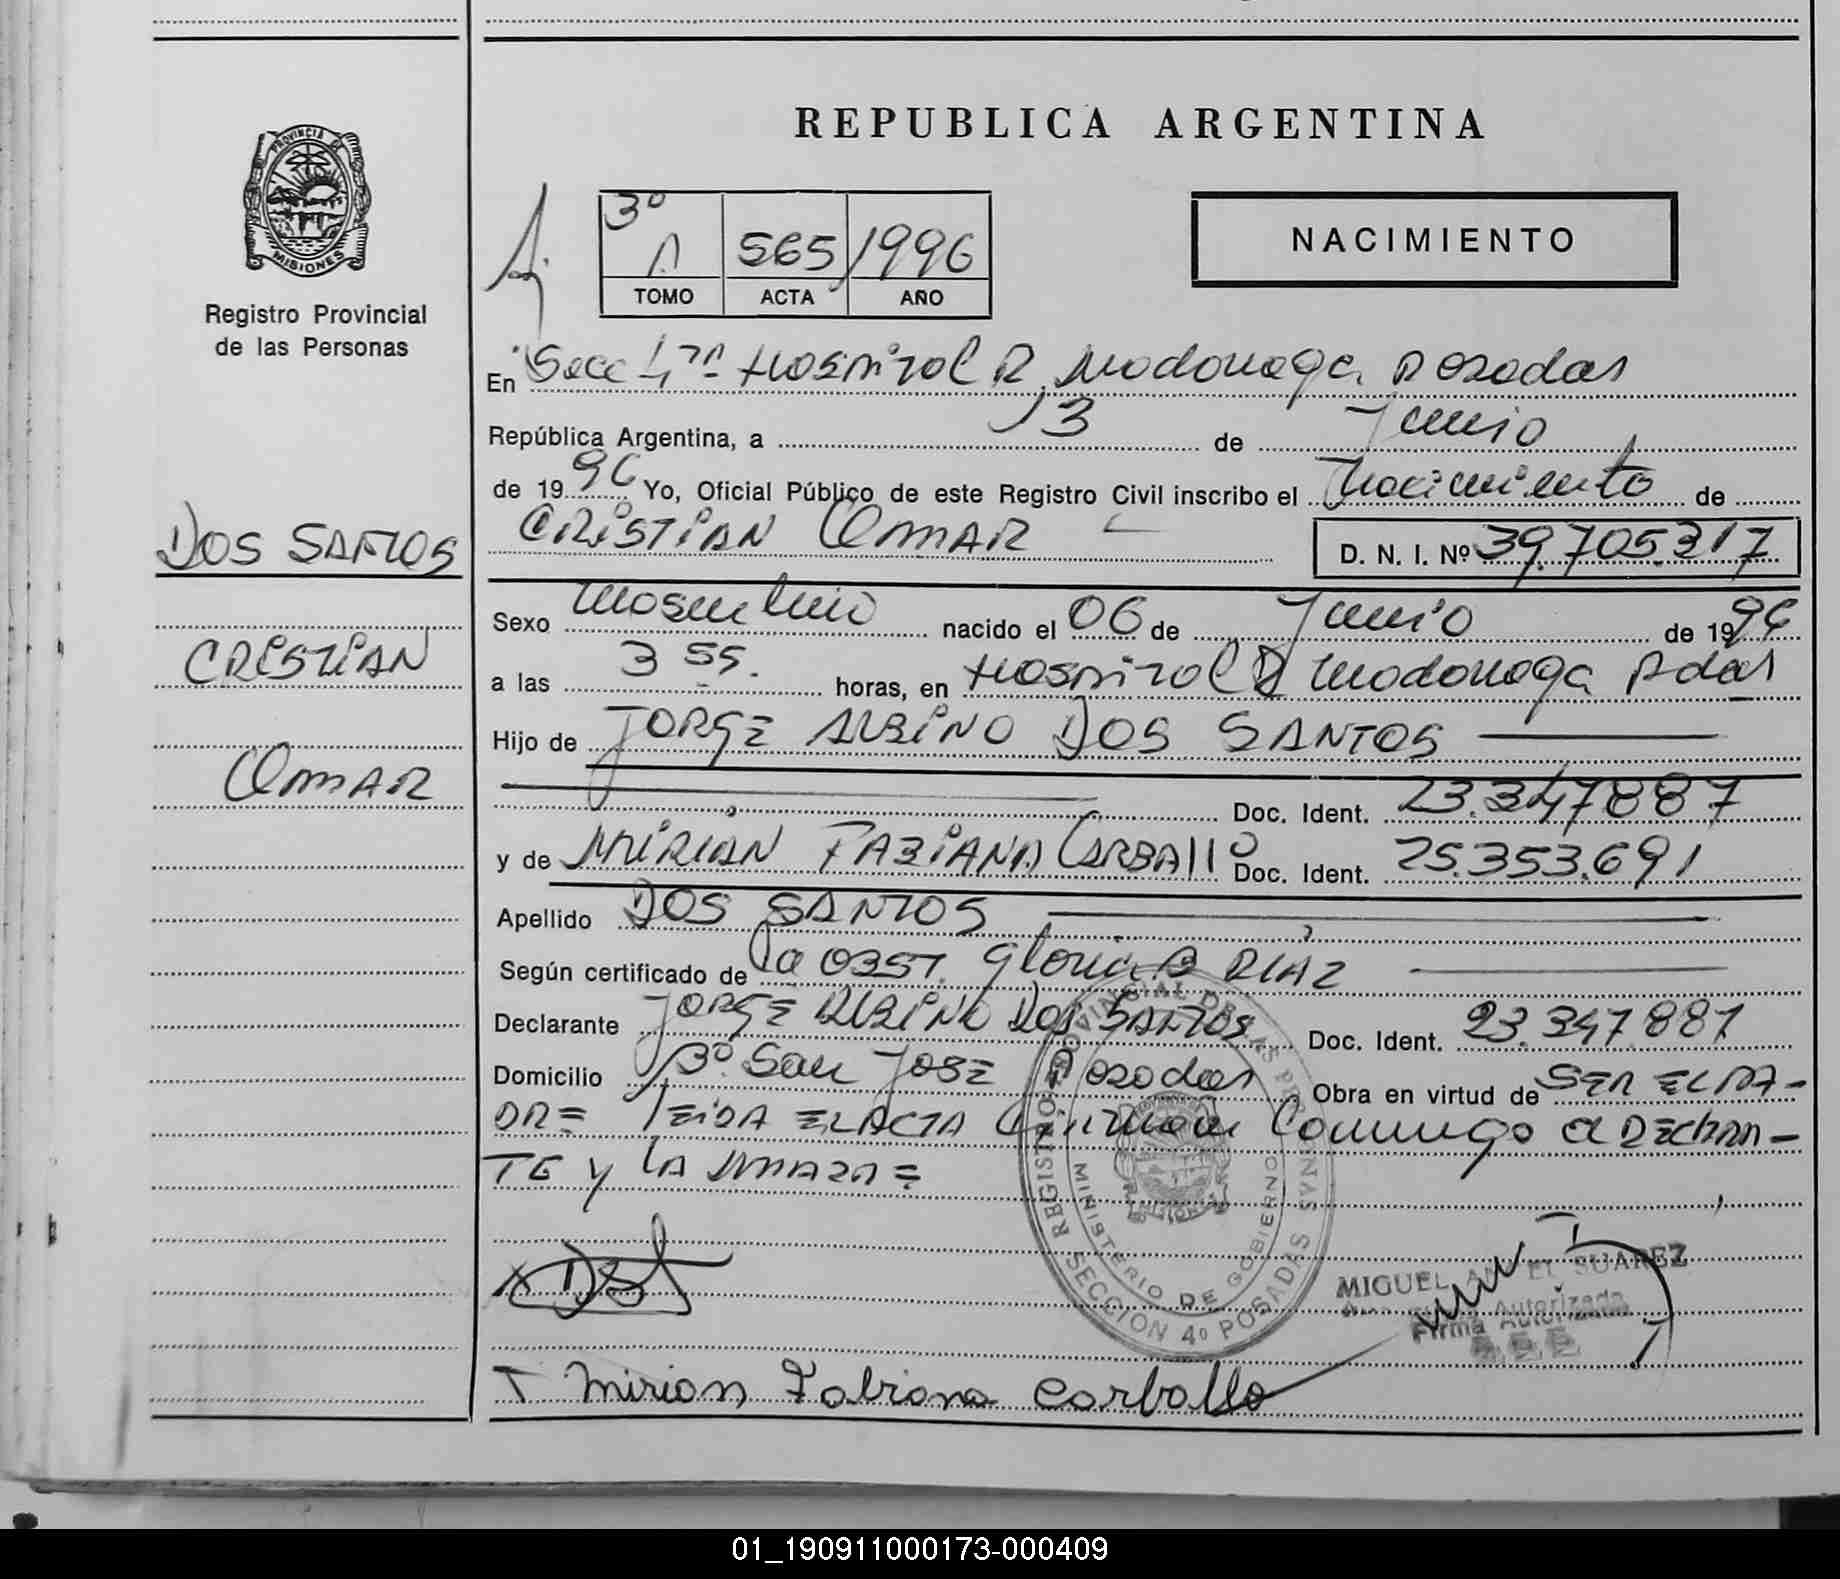 REPUBLICA ARGENTINA
PROVINCIA DE
MISIONES
Registro Provincial
de las Personas
3º
A 565 1996
TOMO ACTA AÑO
NACIMIENTO
En Secc 4ta Hospital R. Madariaga Posadas
República Argentina, a 13 de Junio
de 1996 Yo, Oficial Público de este Registro Civil inscribo el Nacimiento de
CRISTIAN OMAR
D. N. I. Nº 39.705.317
DOS SANTOS
CRISTIAN
OMAR
Sexo Masculino nacido el 06 de Junio de 1996
a las 3 55. horas, en Hospital R Madariaga Pdas
Hijo de JORGE ALBINO DOS SANTOS
Doc. Ident. 23.347887
y de MIRIAN FABIANA CARBALLO Doc. Ident. 25.353.691
Apellido DOS SANTOS
Según certificado de La 0351 Gloria B DIAZ
Declarante JORGE ALBINO DOS SANTOS Doc. Ident. 23.347.887
Domicilio Bº San JOSE Posadas Obra en virtud de SER EL PA-
DRE LEIDA EL ACTA firman Conmigo el DECLARAN-
TE y LA MADRE
REGISTRO PROVINCIAL DE LAS PERSONAS
MINISTERIO DE GOBIERNO
SECCION 4º POSADAS
MIGUEL ANGEL SUAREZ
Firma Autorizada
Mirian Fabiana Carballo
01_190911000173-000409